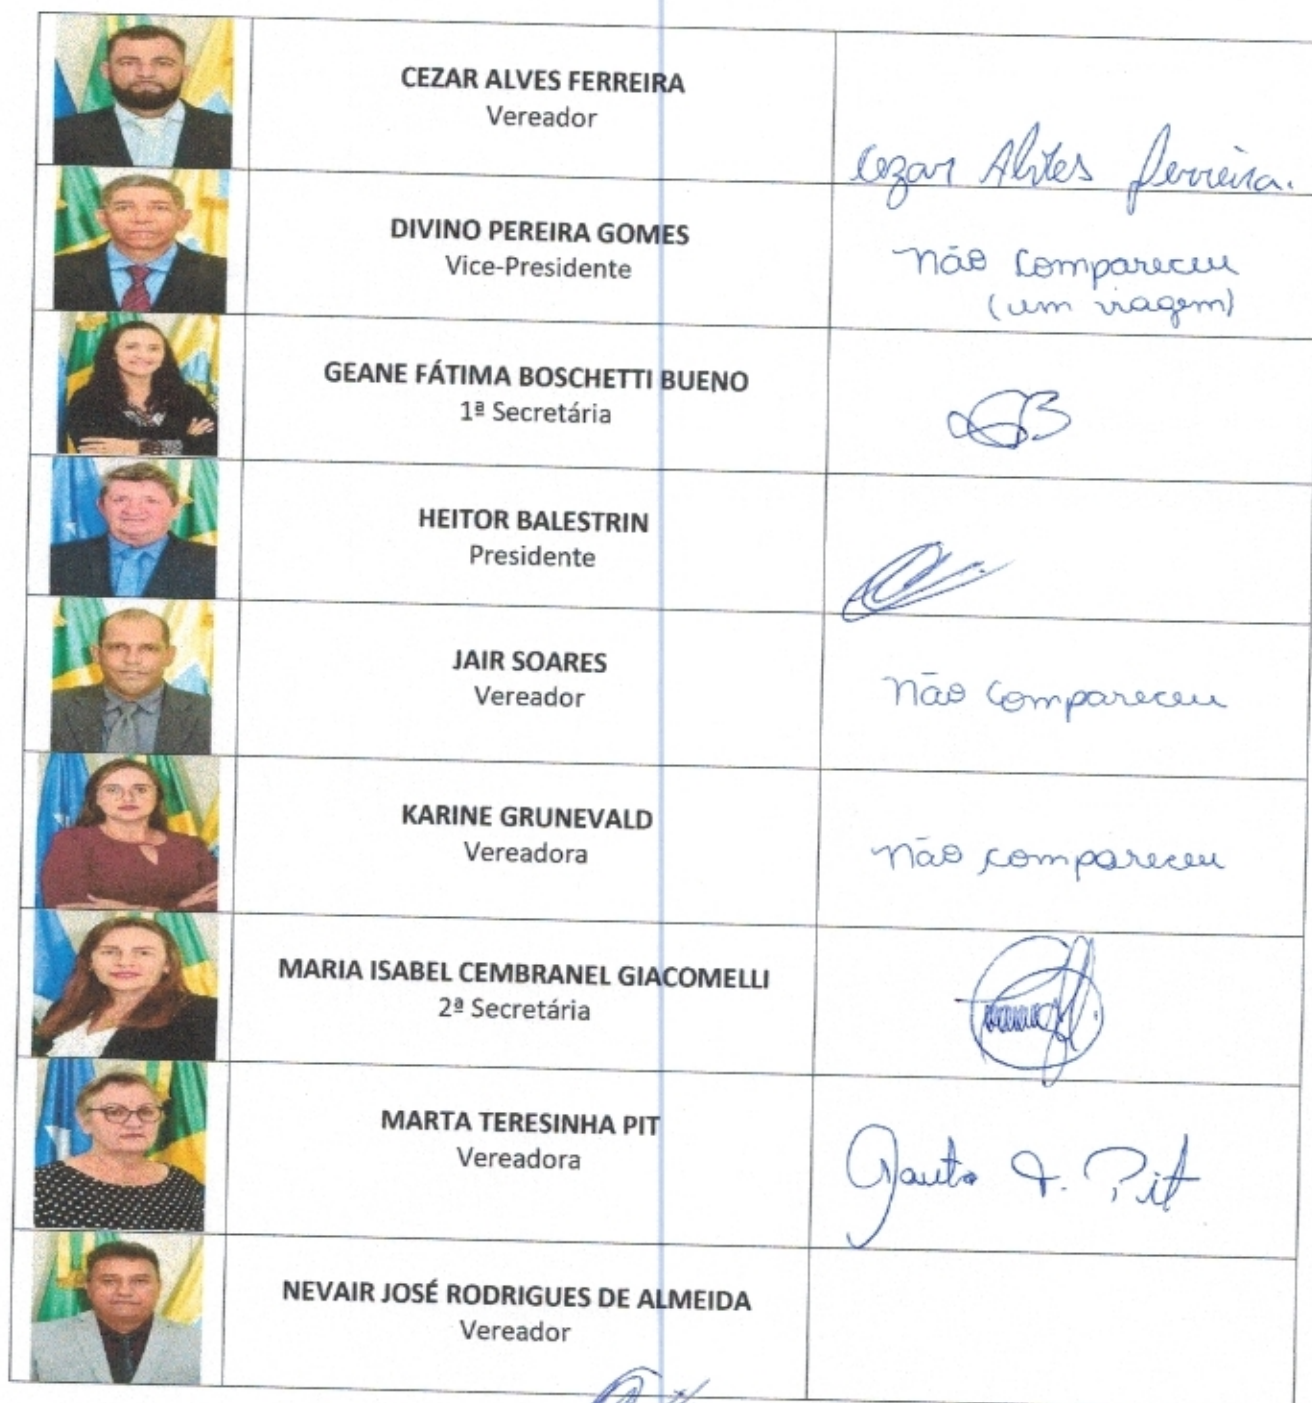 CEZAR ALVES FERREIRA
Vereador
Cezar Alves Ferreira.
DIVINO PEREIRA GOMES
Vice-Presidente
Não compareceu
(em viagem)
GEANE FÁTIMA BOSCHETTI BUENO
1ª Secretária
HEITOR BALESTRIN
Presidente
JAIR SOARES
Vereador
Não compareceu
KARINE GRUNEVALD
Vereadora
Não compareceu
MARIA ISABEL CEMBRANEL GIACOMELLI
2ª Secretária
MARTA TERESINHA PIT
Vereadora
Marta T. Pit
NEVAIR JOSÉ RODRIGUES DE ALMEIDA
Vereador